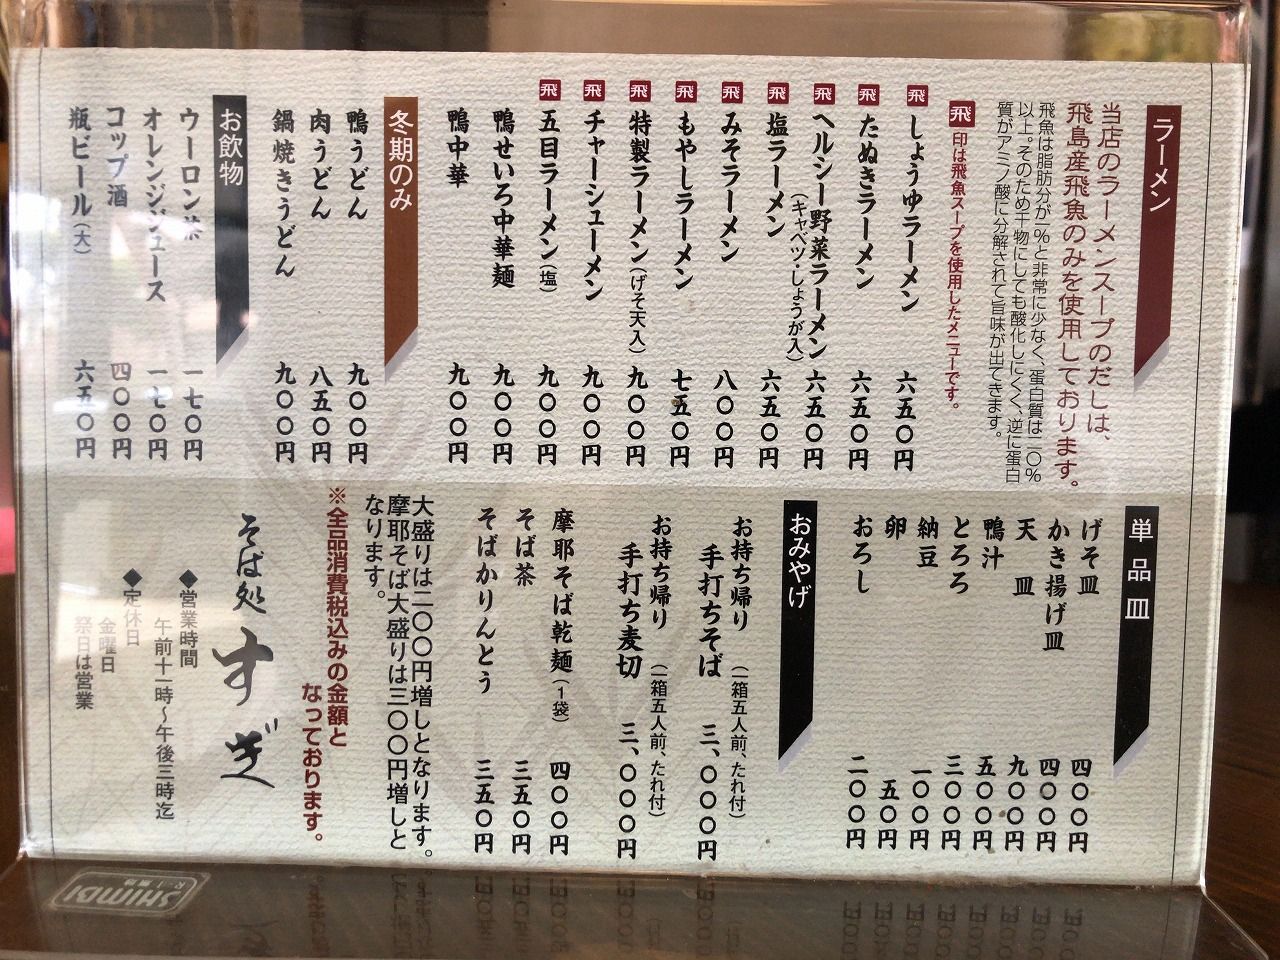 ラーメン
当店のラーメンスープのだしは、
飛島産飛魚のみを使用しております。
飛魚は脂肪分が一%と非常に少なく、蛋白質は二〇%
以上。そのため干物にしても酸化しにくく、逆に蛋白
質がアミノ酸に分解されて旨味が出てきます。
飛 印は飛魚スープを使用したメニューです。
飛 しょうゆラーメン 六五〇円
飛 たぬきラーメン 六五〇円
飛 ヘルシー野菜ラーメン 六五〇円
(キャベツ・しょうが入)
飛 塩ラーメン 六五〇円
飛 みそラーメン 八〇〇円
飛 もやしラーメン 七五〇円
飛 特製ラーメン(げそ天入) 九〇〇円
飛 チャーシューメン 九〇〇円
飛 五目ラーメン(塩) 九〇〇円
鴨せいろ中華麺 九〇〇円
鴨中華 九〇〇円
冬期のみ
鴨うどん 九〇〇円
肉うどん 八五〇円
鍋焼きうどん 九〇〇円
お飲物
ウーロン茶 一七〇円
オレンジジュース 一七〇円
コップ酒 四〇〇円
瓶ビール(大) 六五〇円
単品皿
げそ皿 四〇〇円
かき揚げ皿 四〇〇円
天皿 九〇〇円
鴨汁 五〇〇円
とろろ 三〇〇円
納豆 一〇〇円
卵 五〇円
おろし 二〇〇円
おみやげ
お持ち帰り (一箱五人前、たれ付)
手打ちそば 三、〇〇〇円
お持ち帰り (一箱五人前、たれ付)
手打ち麦切 三、〇〇〇円
摩耶そば乾麺(1袋) 四〇〇円
そば茶 三五〇円
そばかりんとう 三五〇円
大盛りは二〇〇円増しとなります。
摩耶そば大盛りは三〇〇円増しと
なります。
※全品消費税込みの金額と
なっております。
そば処 すぎ
◆営業時間
午前十一時~午後三時迄
◆定休日
金曜日
祭日は営業
SHIMBI